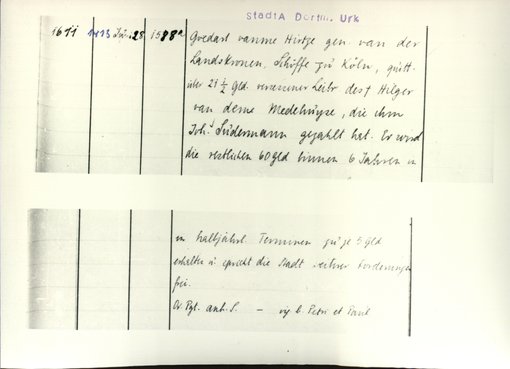 StadtA Dortm. Urk
1611 1413 Jun. 28 1588a Goedart vanme Hirtze gen. van der
Landskronen, Schöffe zu Köln, quitt.
über 21 ½ Gld. Leibr. des † Hilger
van deme Medehuyse, die ihm
Joh. Sudermann gezahlt hat. Er wird
die restlichen 60 Gld binnen 6 Jahren in
in halbjährl. Terminen zu je 5 Gld
erhalten u. spricht die Stadt seiner Forderungen
frei.
Or. Pgt. anh. S. — vig. b. Petri et Pauli